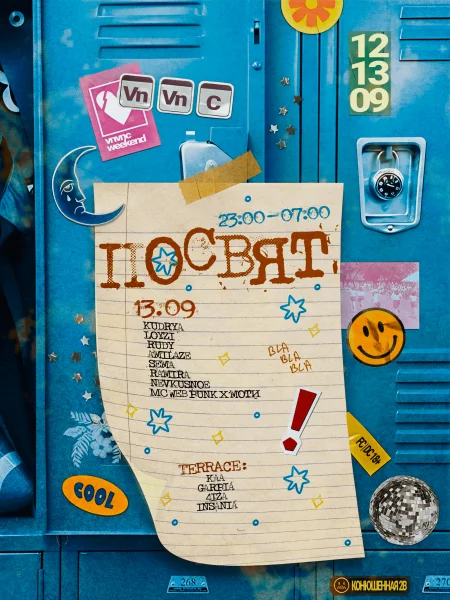 12
13
09
Vn
Vn
C
vnvnc
weekend
23:00-07:00
ПОСВЯТ
13.09
KUDRYA
LOYZI
RUDY
AMILAZE
SEMA
RAMIRA
NEVKUSNOE
MC WEB PUNK X МОТИ
BLA
BLA
BLA
TERRACE:
KAA
GARPIA
4IZA
INSANIA
FC/DC 18+
COOL
268
270
КОНЮШЕННАЯ 2В